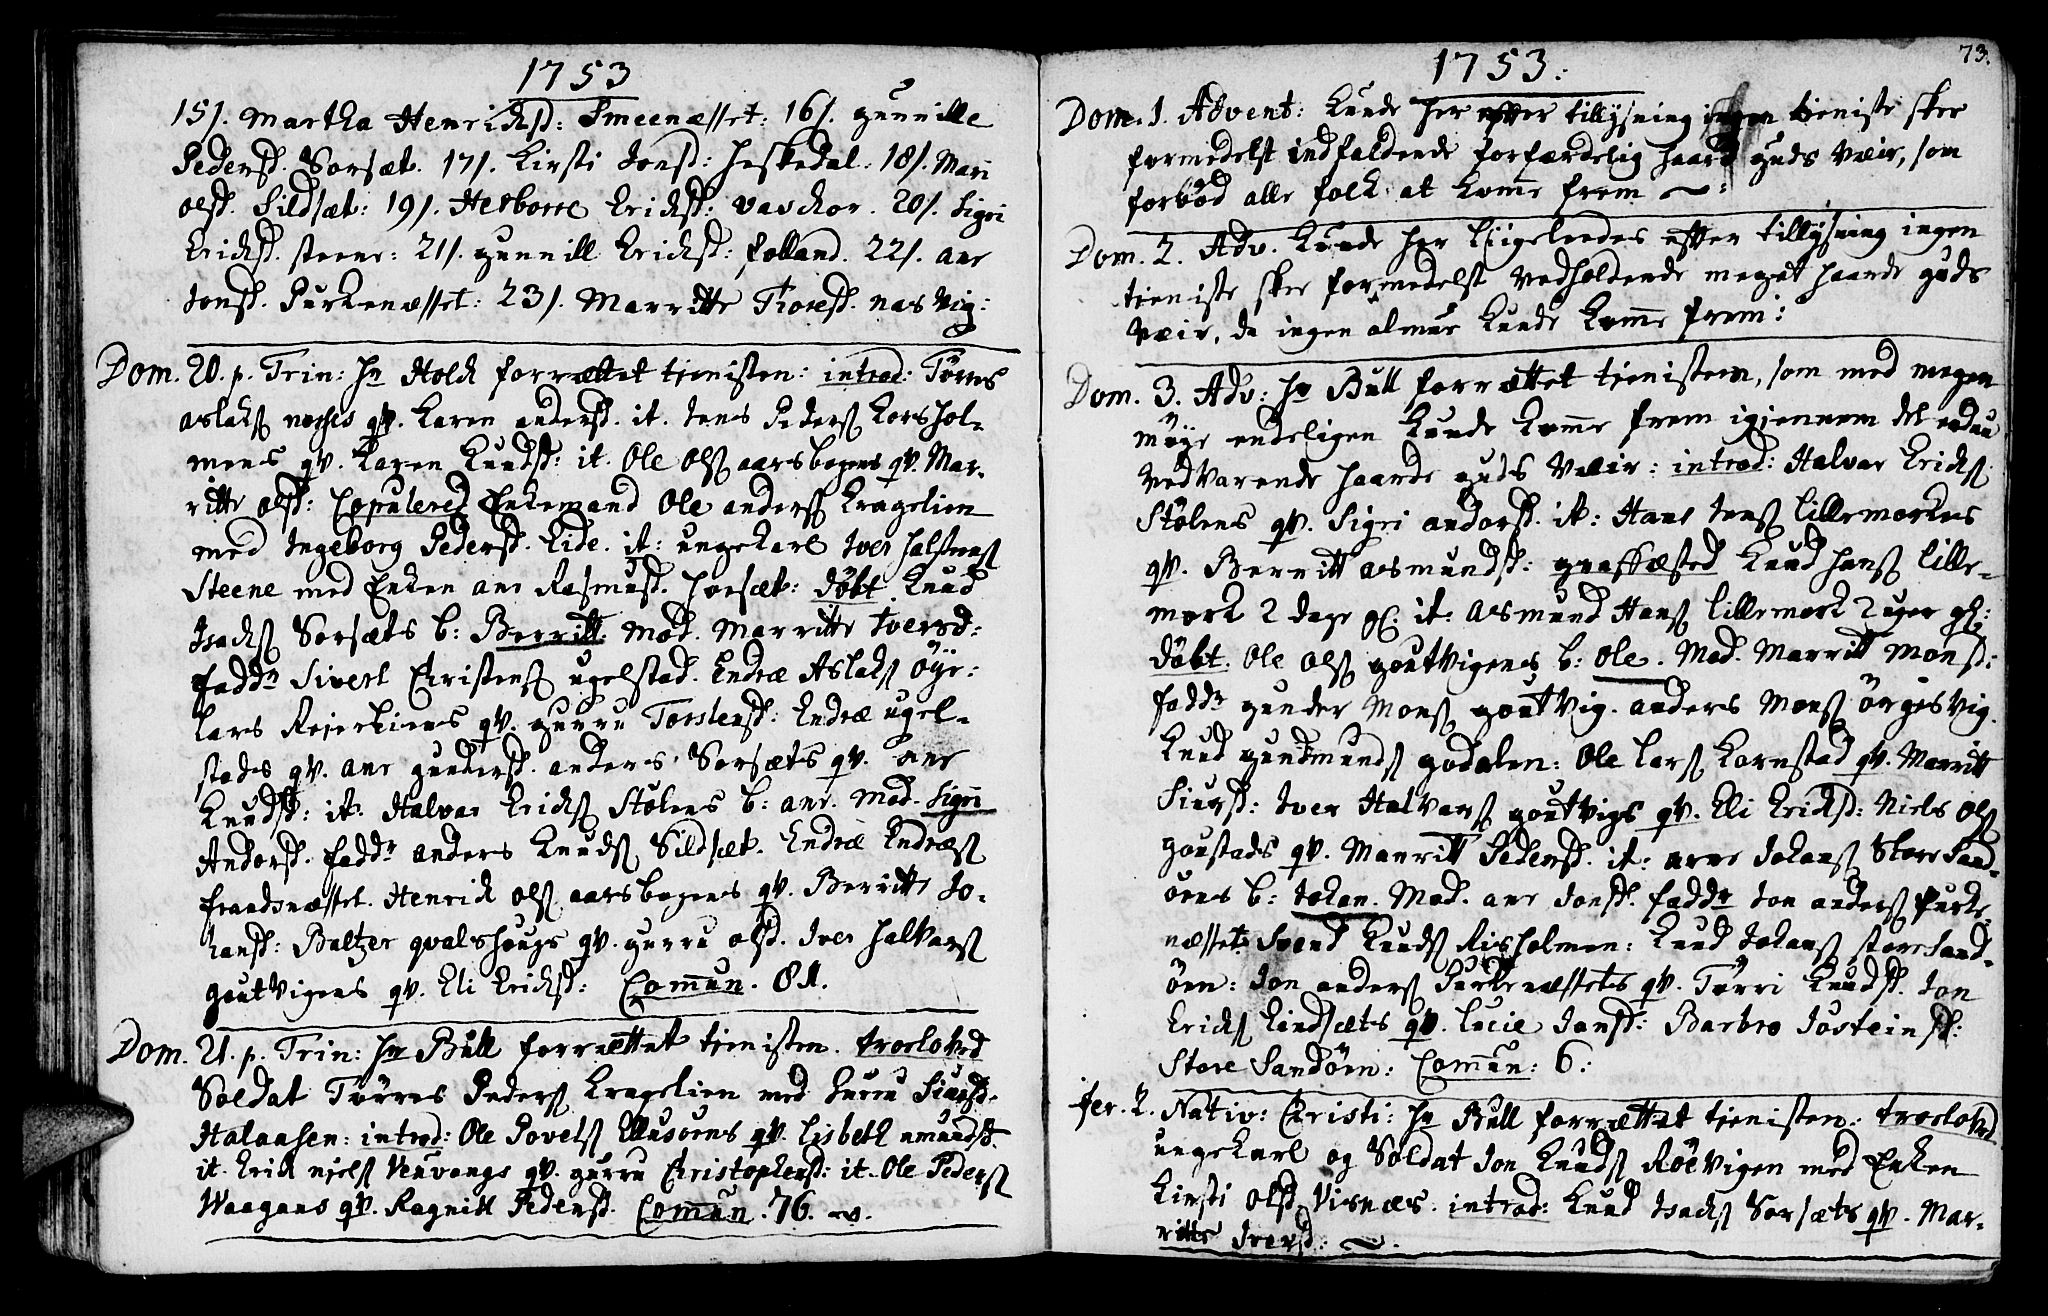 1753
15/. Martha Henrichsd: Smeenesset: 16/. gunnille
Pedersd. Sorsæt. 17/. Kirsti Jonsd: Heskedal. 18/. Mari
olsd. Sildsæt: 19/. Herborre Ericksd: Vaschor. 20/. Sigri
Ericksd. steene: 21/. gunnill Ericksd: folland. 22/. ane
Jonsd. Purkenæsset: 23/. Marritte Toresd. nasvig:
Dom. 20. p. Trin: Hr Hold forrættet tienisten: introd: Tørres
aslaks qv. Karen andersd. it. Jens Peders Korshol-
mens qv. Karen Knudsd: it. Ole Ols aarsbogens qv. Mar-
ritte olsd: Copulered Enkemand Ole anders Kragelien
med Ingeborg Pedersd. Eide. it: ungekarl Iver halstens
Steene med Enken ane Rasmusd. horsæt: døbt Knud
Isachs Sorsæts b: Berritt. Mod. Marritte Iversd:
fadd. Sivert Christens ugelstad. Endræ Aslaks øye:
Lars Rejerliens qv. gurru Torstensd: Endræ ugel-
stads qv. ane gundersd. anders Sorsæts qv. ane
Knudsd: it. Halvar Ericks Stølens b: ane. Mod. Sigri
Andersd. fadd. anders Knuds Sildsæt. Endræ Endræs
frandsnæsset. Henrich ols aarsbogens qv. Berritte Jo-
hansd: Baltzer qvalshougs qv. gurru olsd. Iver halvars
goutvigens qv. Eli Ericksd: Com̄un. 81.
Dom. 21. p. Trin: Hr Bull forrættet tienisten. troloved
Soldat Tørres Peders Kragelien med gurru Siursd.
Halaasen: introd: Ole Povels Ellusøens qv. Lisbeth amundsd.
it. Erich niels Veuvangs qv. gurru Christophersd: it. Ole Peders
Waagans qv. Ragnill Pedersd. Com̄un. 76.
73.
1753:
Dom. 1. Advent: Kunde her efter tillysning ingen tieniste skee
formedelst indfaldende forfærdelig haard guds veir, som
forbød alle folk at kom̄e frem
Dom. 2. Adv. Kunde her ligeleedes efter tillysning ingen
tieniste skee formedelst vedholdende meget haarde guds
veir, da ingen almue kunde kom̄e frem:
Dom. 3. Adv: Hr Bull forrættet tienisten, som med megen
møye endeligen kunde kom̄e frem igiennem det endnu
vedvarende haarde guds veir: introd: Halvar Ericks
Stølens qv. Sigri andersd. it: Hans Jens Lillemorkens
qv. Berritt asmundsd: graffæsted Knud hans Lille-
mork 2 dage gl. it: asmund Hans Lillemork 2 uger gl:
døbt. Ole ols goutvigens b: Ole. Mod. Marritt Monsd:
fadd. gunder Mons goutvig. anders Mons ørgesvig.
Knud gudmunds godalen: Ole Lars Kornstad qv. Marritt
Siursd: Iver Halvars goutvigs qv. Eli Ericksd: Niels Ols
goustads qv. Marritt Pedersd. it: arne Johans Store Sand-
øens b: Johan. Mod. ane Jonsd. fadd. Jon anders purke-
næsset. Svend Knuds Risholmen: Knud Johans store Sand-
øen: Jon anders Purkenæssets qv. Tørri Knudsd. Jon
Ericks Lindsæts qv. Lucie Jonsd: Barbro Jøsteinsd:
Store Sandøen: Com̄un: 6:
fer. 2. Nativ: Christi: Hr Bull forrættet tienisten: troloved
ungekarl og Soldat Jon Knuds Røevigen med Enken
Kirsti Olsd. Visnæs. introd: Knud Isachs Sorsæts qv. Mar-
ritte Iversd: